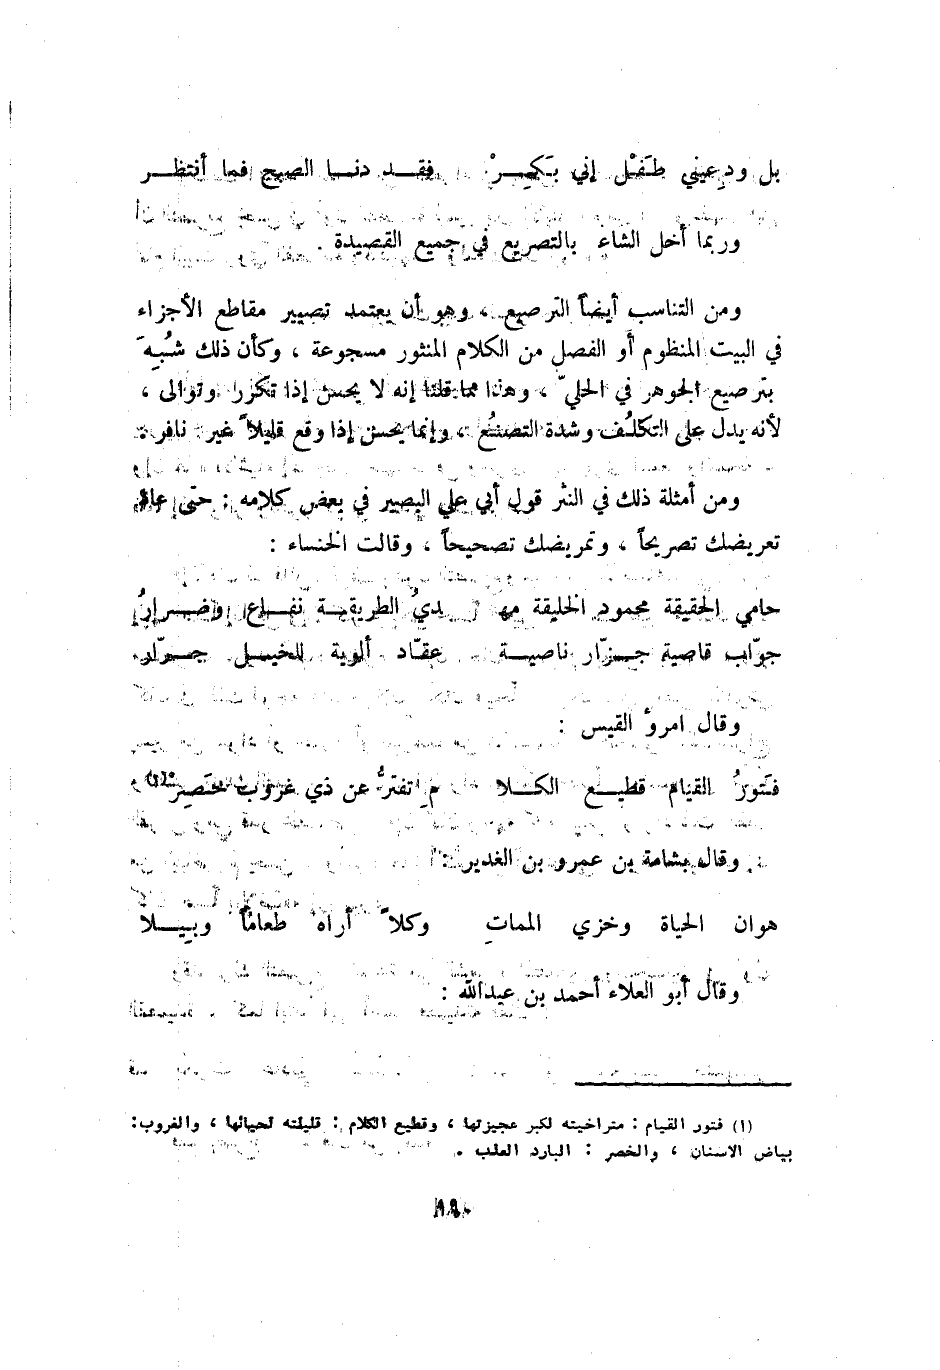 بل ودعيني طَفْل إني بَكِرْ فقد دنا الصبح فما أنتظر
وربما أخل الشاع بالتصريع في جميع القصيدة .
ومن التناسب أيضاً الترصيع ، وهو أن يعتمد تصيير مقاطع الأجزاء
في البيت المنظوم أو الفصل من الكلام المنثور مسجوعة ، وكأن ذلك شُبِهَ
بترصيع الجوهر في الحليّ ، وهذا مما قلنا إنه لا يحسن إذا تكرر وتوالى ،
لأنه يدل على التكلُف وشدة التصنُع ، وإنما يحسن إذا وقع قليلاً غير نافر .
ومن أمثلة ذلك في النثر قول أبي علي البصير في بعض كلامه : حتى عاد
تعريضك تصريحاً ، وتمريضك تصحيحاً ، وقالت الخنساء :
حامي الحقيقة محمود الخليقة مهـ ديُ الطريقة نفاع وضرارُ
جوّاب قاصية جزّار ناصية عقّاد ألوية للخيل جرّار
وقال امرؤ القيس :
فَتورُ القيام قطيع الكلا مِ تفترُّ عن ذي غروب خَصِرْ(١)
وقال بشامة بن عمرو بن الغدير :
هوان الحياة وخزي المماتِ وكلاً أراه طعاماً وبيلا
وقال أبو العلاء أحمد بن عبدالله :
(١) فتور القيام : متراخيته لكبر عجيزتها ، وقطيع الكلام : قليلته لحيائها ، والغروب :
بياض الاسنان ، والخصر : البارد العذب .